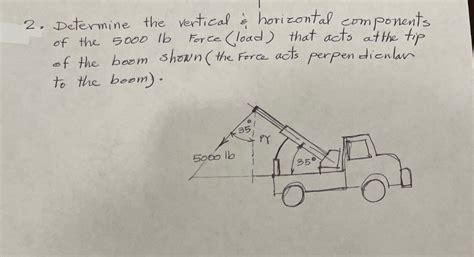 2. Determine the vertical & horizontal components
of the 5000 lb Force (load) that acts at the tip
of the boom shown (the Force acts perpendicular
to the boom).
35°
5000 lb
35°